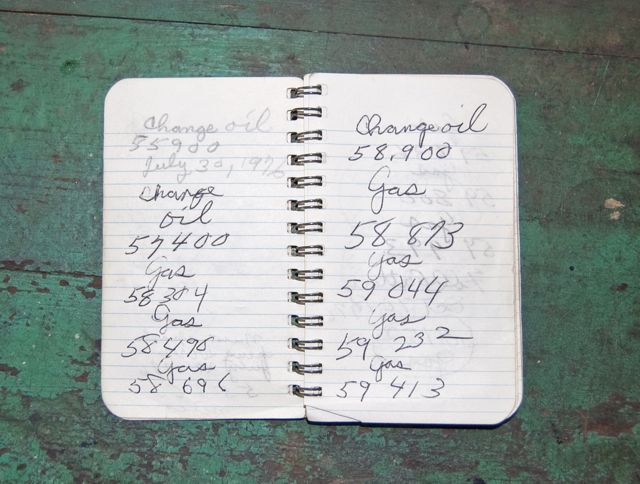 Change oil
55900
July 30, 1976
Change
oil
57400
Gas
58304
Gas
58496
Gas
58 696
Change oil
58,900
Gas
58 873
Gas
59 044
Gas
59 232
Gas
59 413